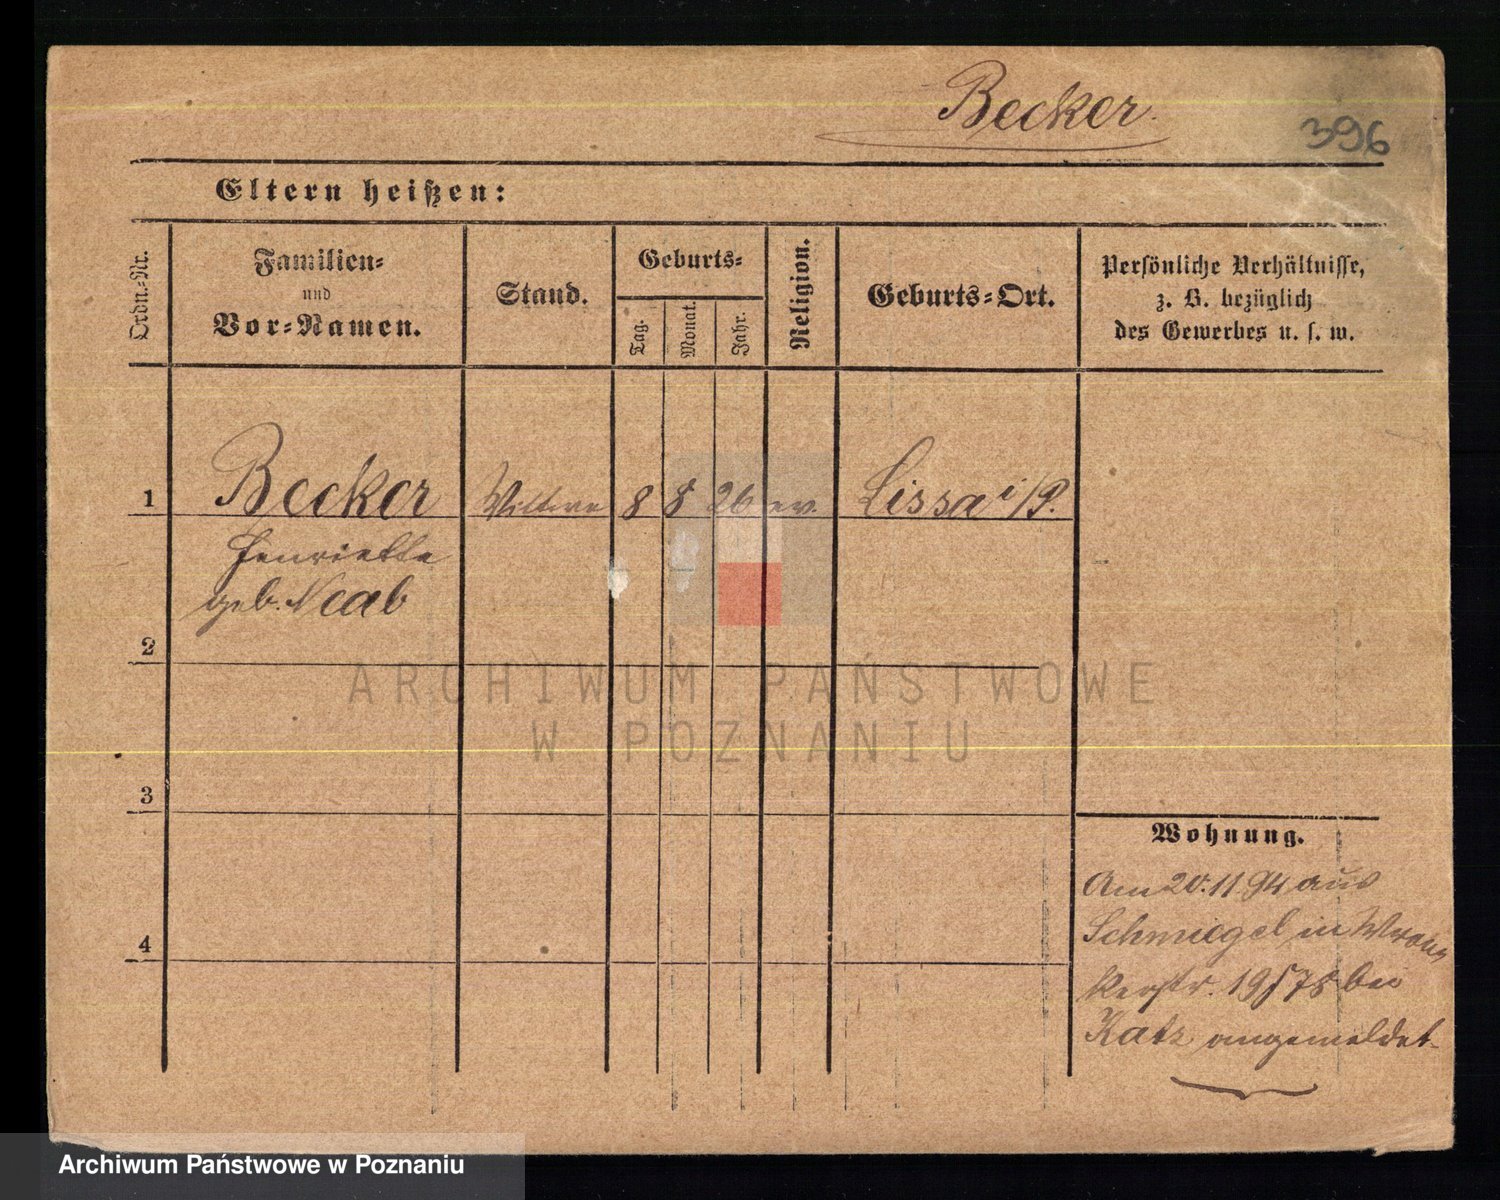 Becker.
396
Eltern heißen:
Ordn.-Nr.
Familien-
und
Vor-Namen.
Stand.
Geburts-
Tag.
Monat.
Jahr.
Religion.
Geburts-Ort.
Persönliche Verhältnisse,
z. B. bezüglich
des Gewerbes u. s. w.
1
Becker
Wittwe
8
8
26
ev.
Lissa i/P.
Henriette
geb. Neab
2
ARCHIWUM PAŃSTWOWE
W POZNANIU
3
Wohnung.
Am 20.11 94 aus
Schmiegel in Wron
kerstr. 19/78 bei
Katz angemeldet
4
Archiwum Państwowe w Poznaniu